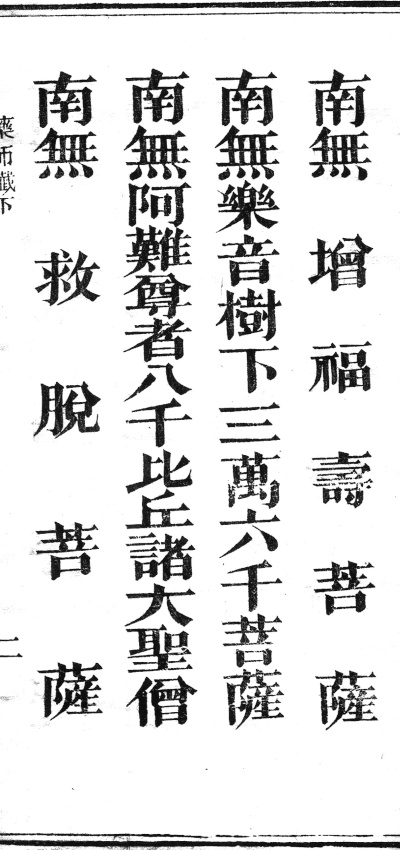 南無增福壽菩薩
南無樂音樹下三萬六千菩薩
南無阿難尊者八千比丘諸大聖僧
南無救脫菩薩
藥師懺下
二